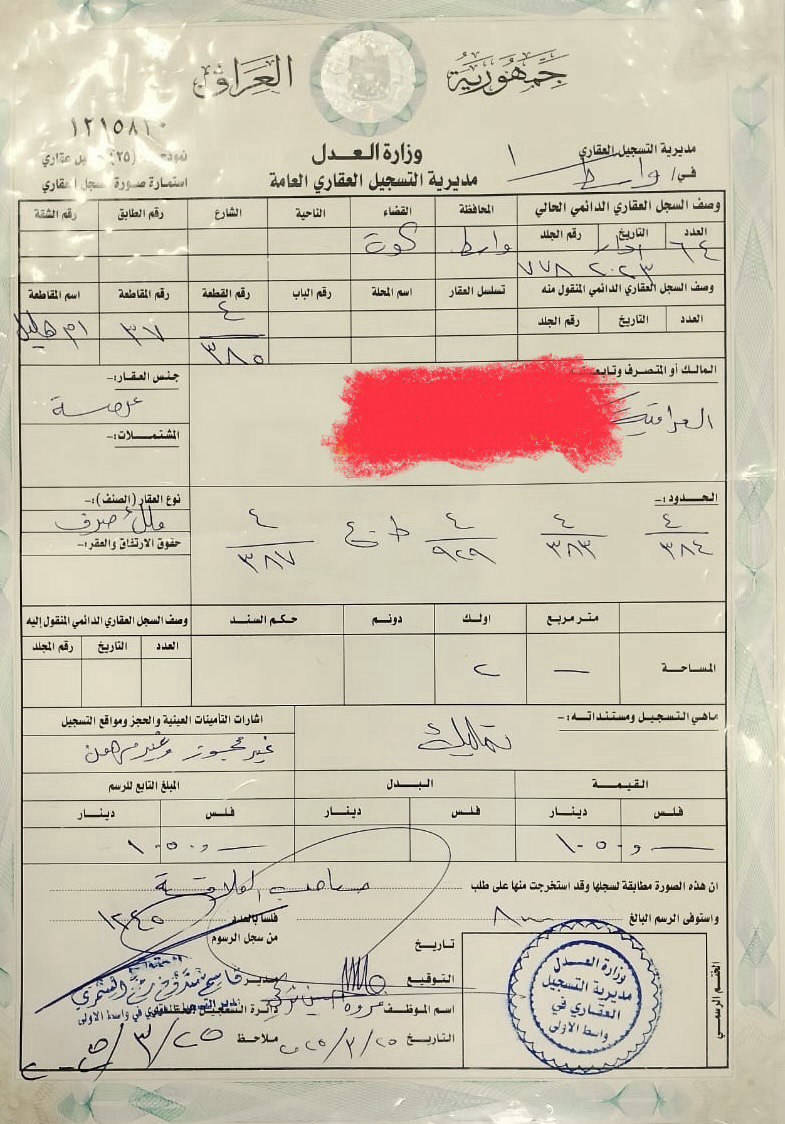 جمهورية العراق
١٢١٥٨١٠
مديرية التسجيل العقاري
في/ واسط ١
وزارة العدل
مديرية التسجيل العقاري العامة
استمارة صورة سجل عقاري
وصف السجل العقاري الدائمي الحالي المحافظة القضاء الناحية الشارع رقم الطابق رقم الشقة
العدد التاريخ رقم الجلد
٦٤ اذار ٢٠٢٣ ٧٧٨ واسط كوت
وصف السجل العقاري الدائمي المنقول منه تسلسل العقار اسم المحلة رقم الباب رقم القطعة رقم المقاطعة اسم المقاطعة
العدد التاريخ رقم الجلد
٤/٣٨٥ ٣٧ ام هليل
المالك أو المتصرف
العراقية
جنس العقار:-
عرصة
المشتملات:-
الحدود:-
٤/٣٨٤ ٤/٣٨٣ ٤/٩٢٩ ط.ع ٤/٣٨٧
نوع العقار (الصنف):-
ملك صرف
حقوق الارتفاق والعقر:-
متر مربع اولك دونم حكم السند
المساحة — ٢
وصف السجل العقاري الدائمي المنقول إليه
العدد التاريخ رقم المجلد
ماهي التسجيل ومستنداته:-
تمليك
اشارات التأمينات العينية والحجز ومواقع التسجيل
غير محجوز وغير مرهون
القيمة البدل المبلغ التابع للرسم
فلس دينار فلس دينار فلس دينار
ان هذه الصورة مطابقة لسجلها وقد استخرجت منها على طلب صاحب العلاقة
واستوفى الرسم البالغ فلسا بالعدد
من سجل الرسوم
تاريخ
التوقيع
اسم الموظف
التاريخ ٢٠٢٥/٣/٢٥
مدير
دائرة التسجيل العقاري
ملاحظ
مدير التسجيل العقاري في واسط الاولى
٢٠٢٥/٣/٢٥
الختم الرسمي
وزارة العدل
مديرية التسجيل
العقاري في
واسط الاولى